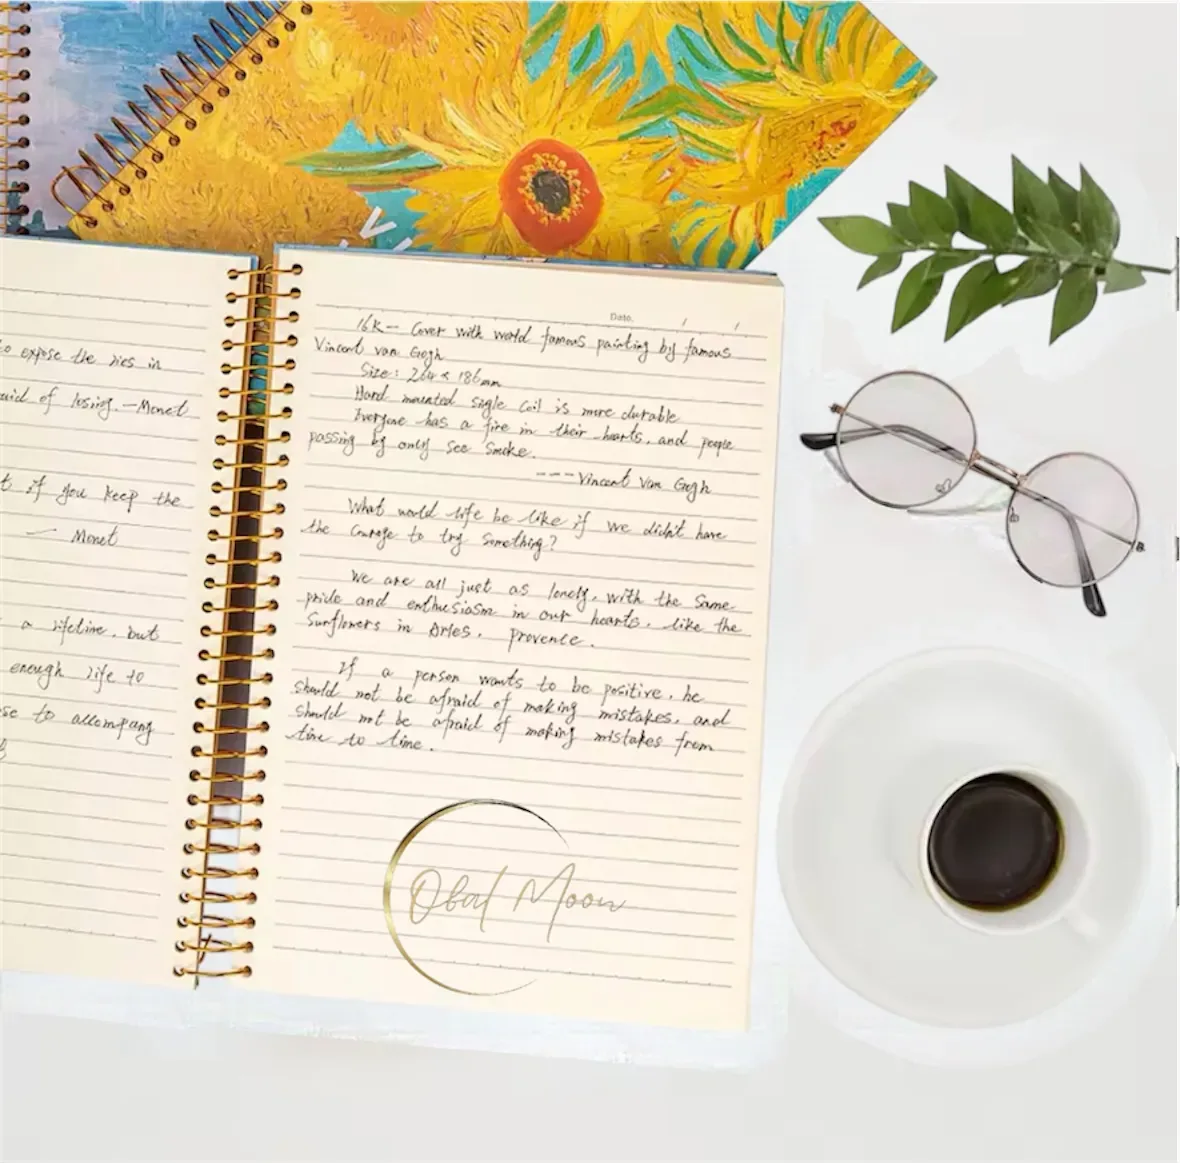 to expose the lies in
aid of losing.—Monet
t if you keep the
— Monet
a lifeline, but
enough life to
se to accompany
Date. / /
16K— Cover with world famous painting by famous
Vincent van Gogh
Size: 264 × 186mm
Hard mounted sigle coil is more durable
Everyone has a fire in their hearts, and people
passing by only see smoke.
---Vincent Van Gogh
What would life be like if we didn't have
the courage to try something?
We are all just as lonely, with the same
pride and enthusiasm in our hearts, like the
Sunflowers in Arles, provence.
If a person wants to be positive, he
should not be afraid of making mistakes, and
should not be afraid of making mistakes from
time to time.
Obal Moon